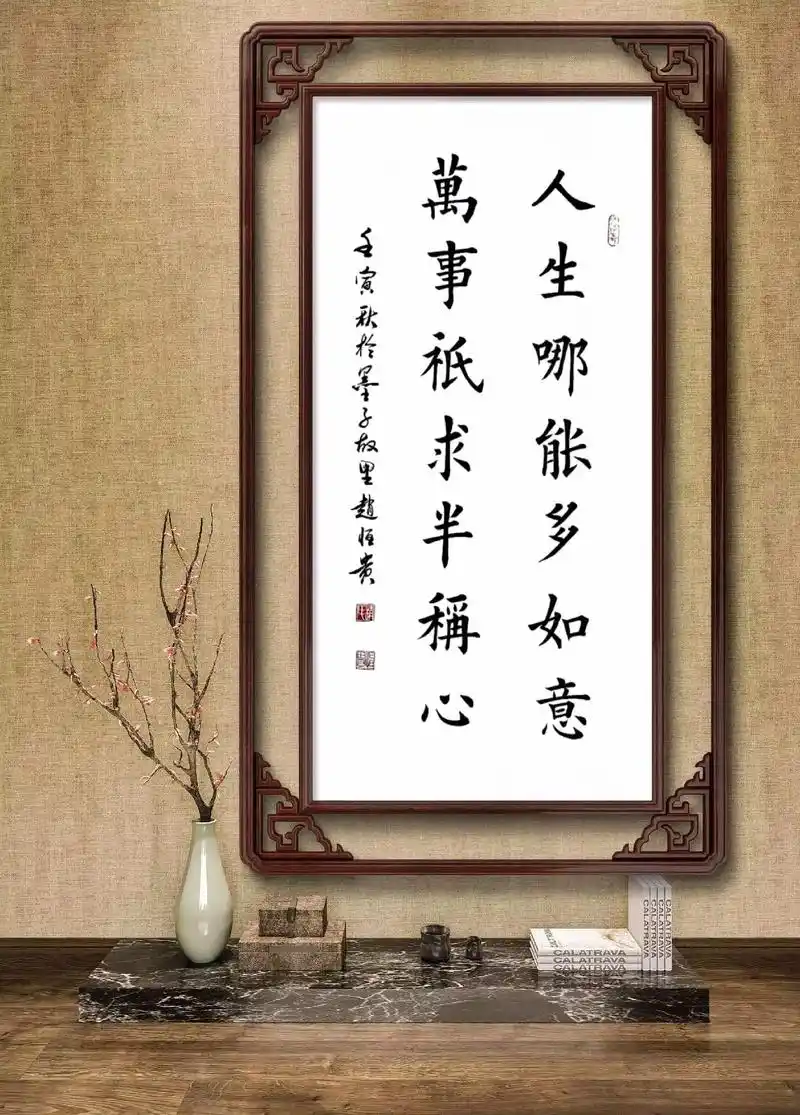 人生哪能多如意
萬事祇求半稱心
壬寅秋於墨子故里趙恒貴
CALATRAVA
CALATRAVA
CALATRAVA
CALATRAVA
CALATRAVA
CALATRAVA
CALATRAVA